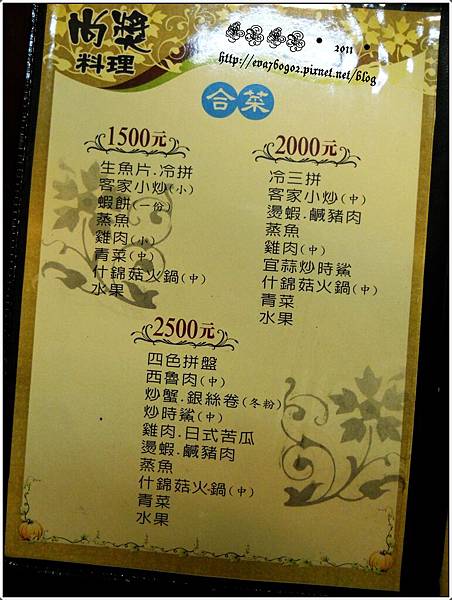 尚奬
料理
2011
http://eva760902.pixnet.net/blog
合菜
1500元
生魚片.冷拼
客家小炒(小)
蝦餅(一份)
蒸魚
雞肉(小)
青菜(中)
什錦菇火鍋(中)
水果
2000元
冷三拼
客家小炒(中)
燙蝦.鹹豬肉
蒸魚
雞肉(中)
宜蒜炒時鯊
什錦菇火鍋(中)
青菜
水果
2500元
四色拼盤
西魯肉(中)
炒蟹.銀絲卷(冬粉)
炒時鯊(中)
雞肉.日式苦瓜
燙蝦.鹹豬肉
蒸魚
什錦菇火鍋(中)
青菜
水果